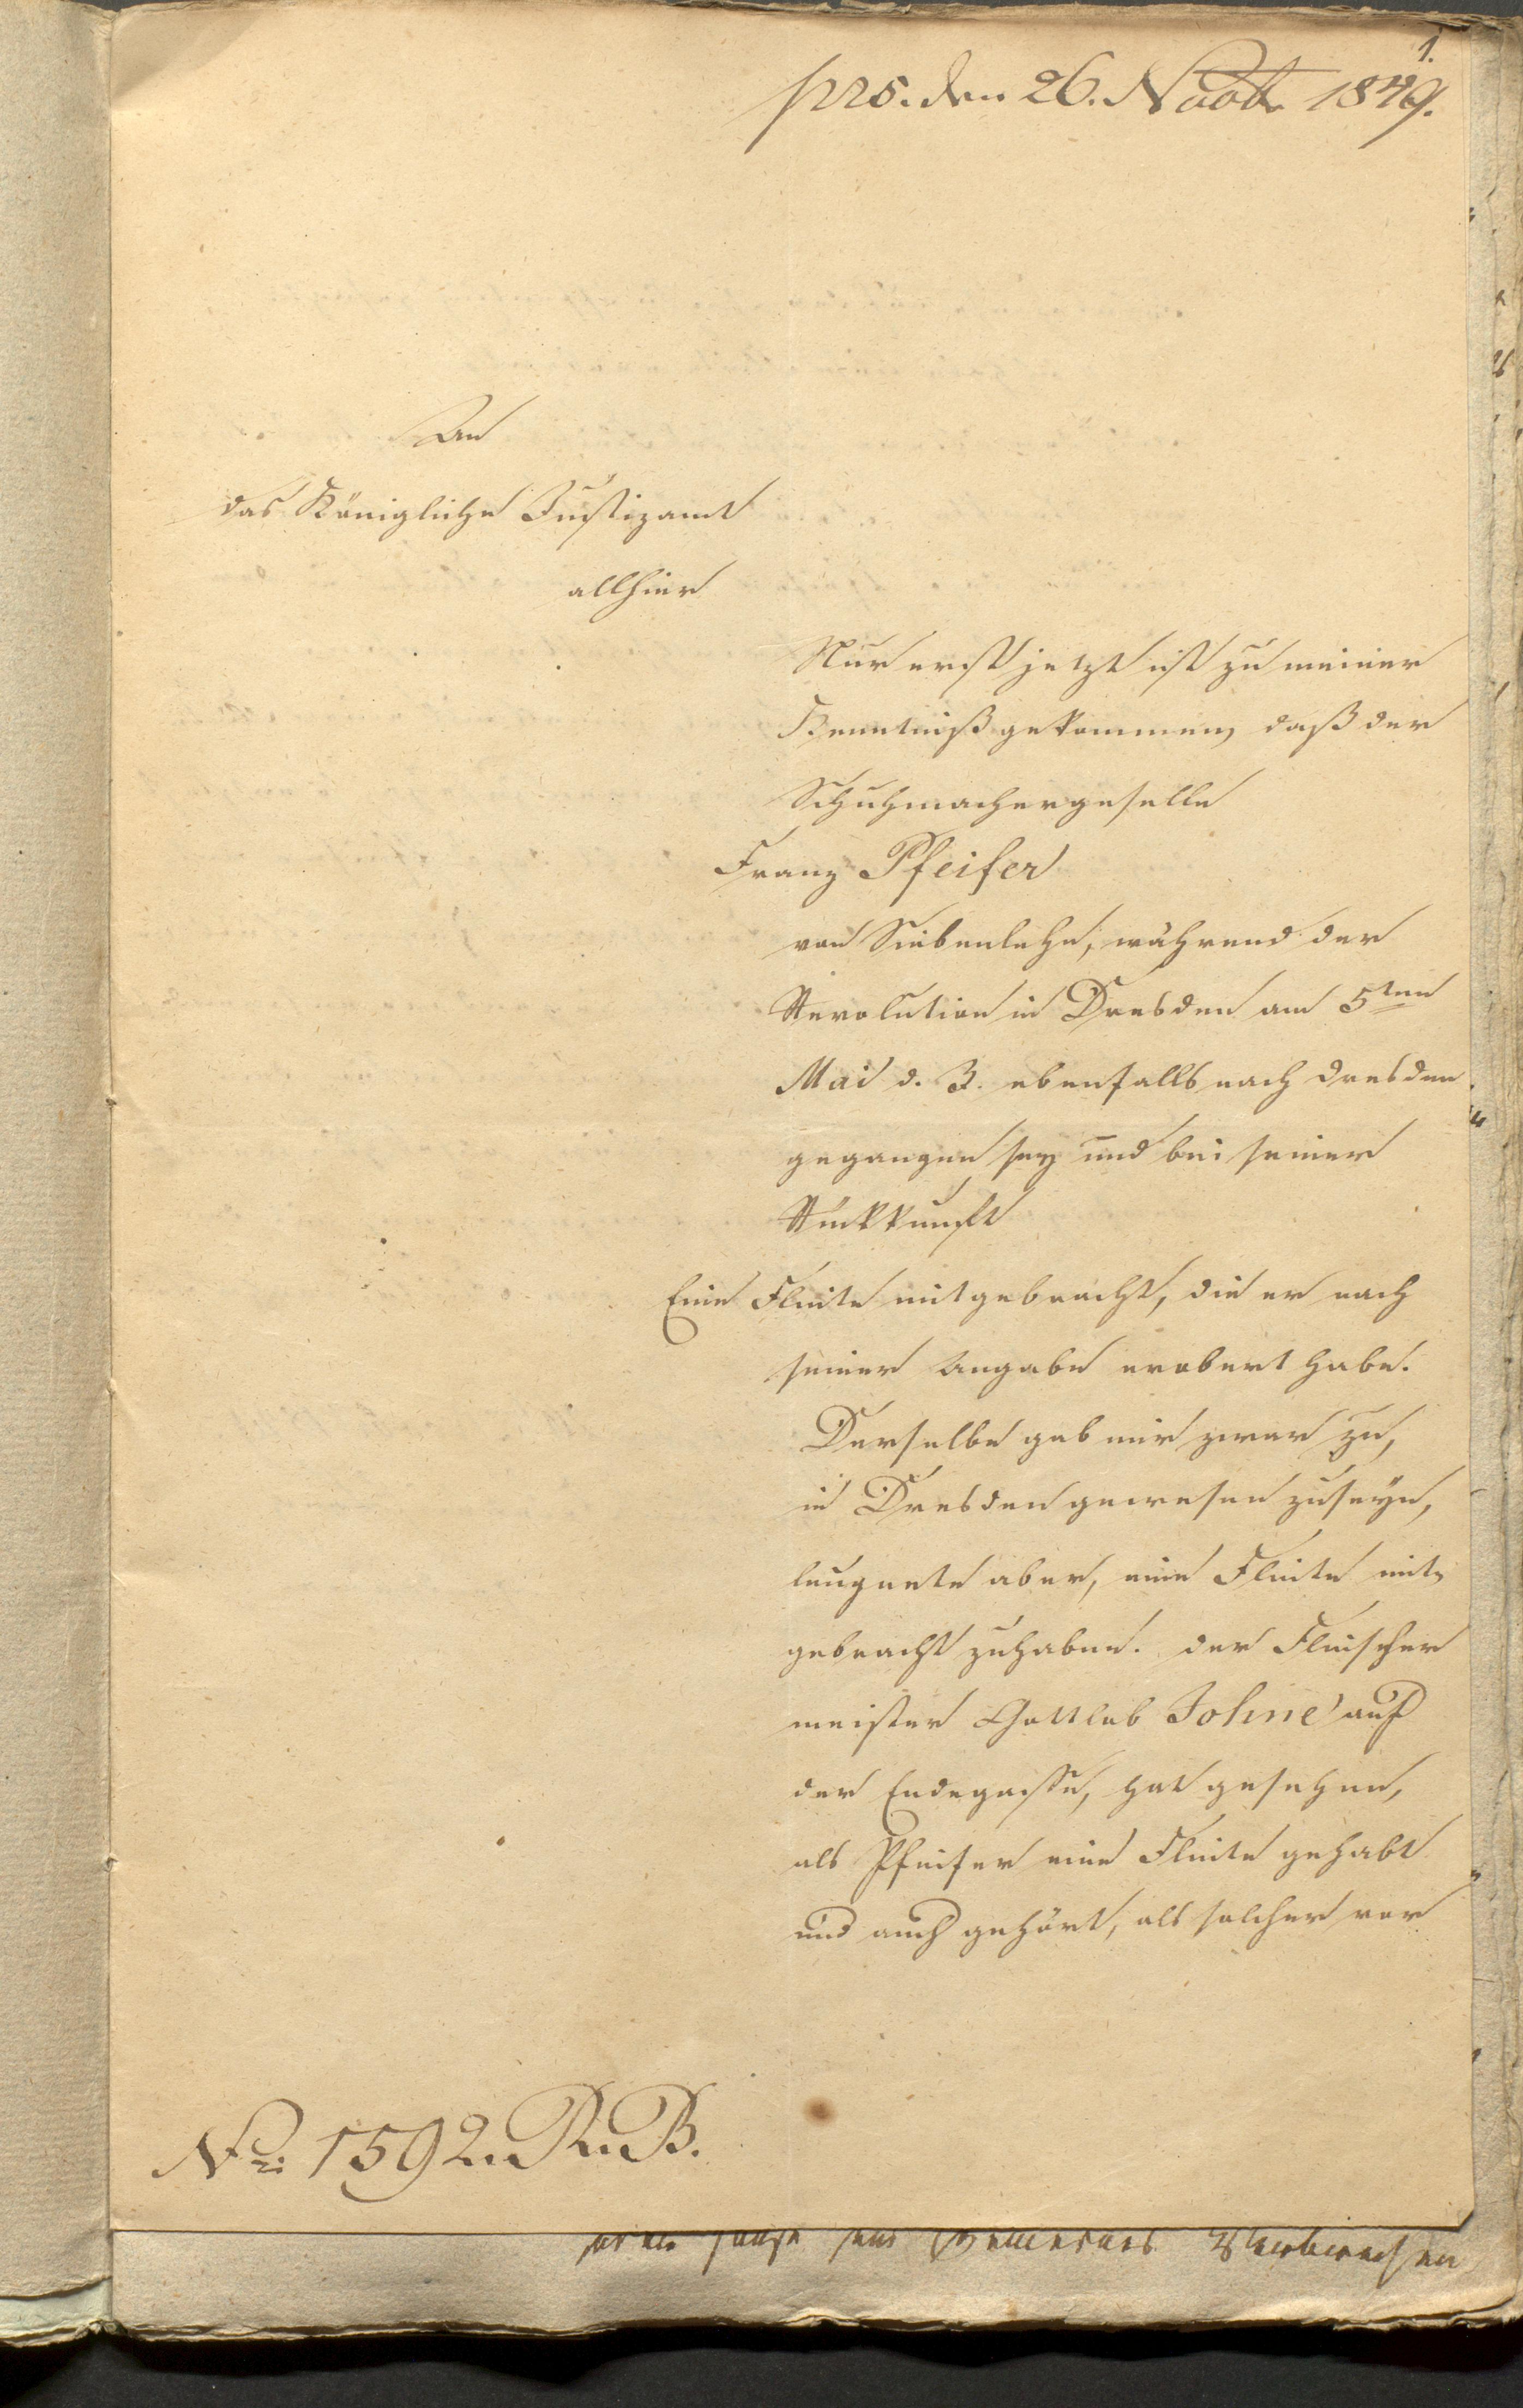 1.
prs. den 26. Novbr 1849.
An
das Königliche Justizamt
allhier
Nur erst jetzt ist zu meiner
Kenntniß gekommen, daß der
Schuhmachergeselle
Franz Pfeifer
von Siebenlehn, während der
Revolution in Dresden am 5ten
Mai d. J. ebenfalls nach Dresden
gegangen sey und bei seiner
Rückkunft
Eine Flinte mitgebracht, die er nach
seiner Angabe erobert habe.
Derselbe gab mir zwar zu,
in Dresden gewesen zu seyn,
leugnete aber, eine Flinte mit-
gebracht zu haben. Der Fleischer
meister Gottlob Johne auf
der Endegasse, hat gesehen,
als Pfeifer eine Flinte gehabt
und auch gehört, als solcher vor
No. 1592. R. B.